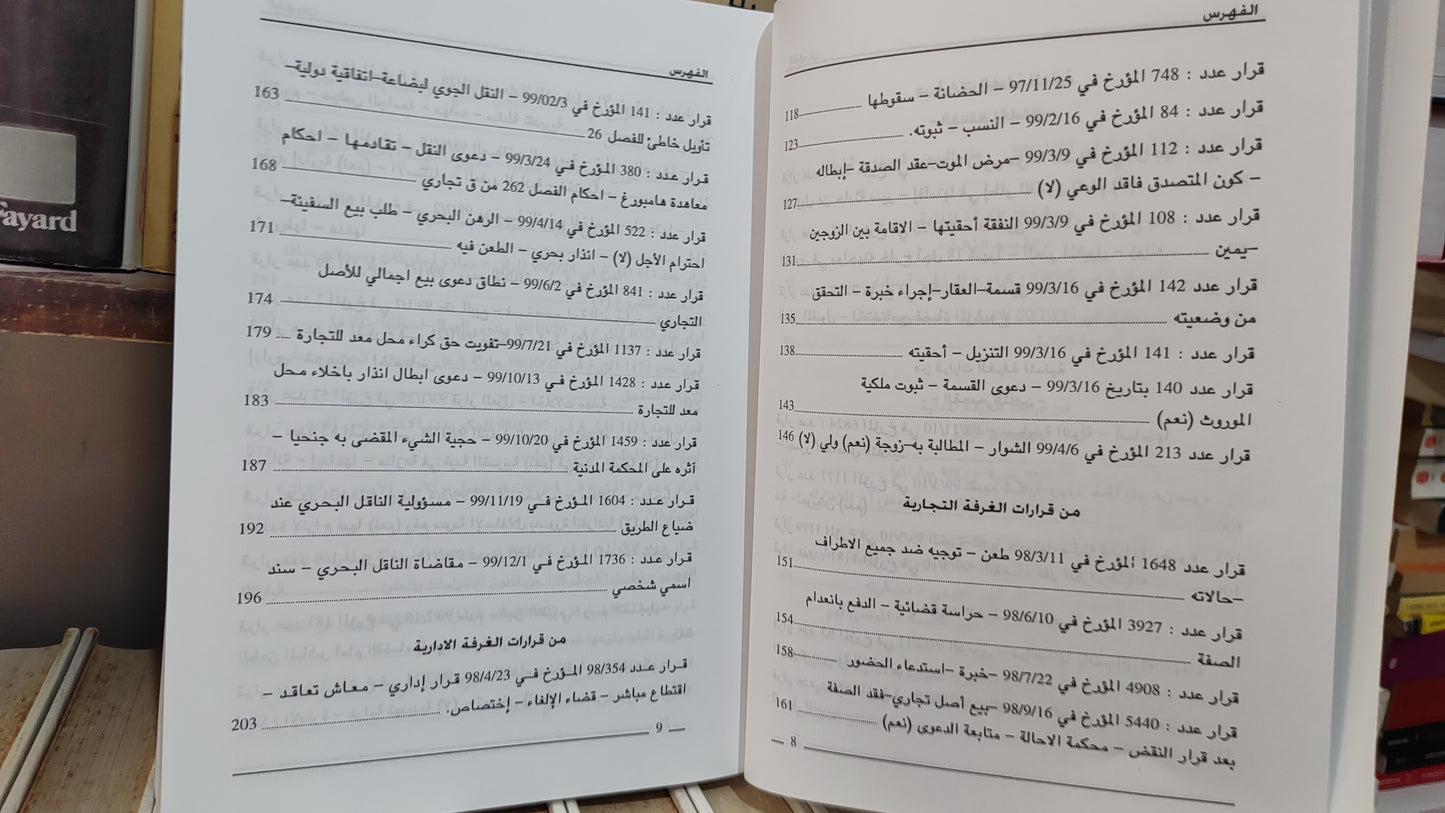 الفهرس
قرار عدد : 748 المؤرخ في 97/11/25 – الحضانة – سقوطها 118
قرار عدد : 84 المؤرخ في 99/2/16 – النسب – ثبوته. 123
قرار عدد : 112 المؤرخ في 99/3/9 –مرض الموت–عقد الصدقة –إبطاله
– كون المتصدق فاقد الوعي (لا) 127
قرار عدد : 108 المؤرخ في 99/3/9 النفقة أحقيتها – الاقامة بين الزوجين
–يمين 131
قرار عدد : 142 المؤرخ في 99/3/16 قسمة–العقار–إجراء خبرة – التحقق
من وضعيته 135
قرار عدد : 141 المؤرخ في 99/3/16 التنزيل – أحقيته 138
قرار عدد 140 بتاريخ 99/3/16 – دعوى القسمة – ثبوت ملكية
الموروث (نعم) 143
قرار عدد 213 المؤرخ في 99/4/6 الشوار – المطالبة به–زوجة (نعم) ولي (لا) 146
من قرارات الغرفة التجارية
قرار عدد 1648 المؤرخ في 98/3/11 طعن – توجيه ضد جميع الاطراف
–حالاته 151
قرار عدد : 3927 المؤرخ في 98/6/10 – حراسة قضائية – الدفع بانعدام
الصفة 154
قرار عدد : 4908 المؤرخ في 98/7/22 –خبرة –استدعاء الحضور 158
قرار عدد : 5440 المؤرخ في 98/9/16 –بيع أصل تجاري–فقد الصفة
بعد قرار النقض – محكمة الاحالة – متابعة الدعوى (نعم) 161
8
الفهرس
قرار عدد : 141 المؤرخ في 99/02/3 – النقل الجوي لبضاعة–اتفاقية دولية–
تأويل خاطئ للفصل 26 163
قرار عدد : 380 المؤرخ في 99/3/24 – دعوى النقل – تقادمها – احكام
معاهدة هامبورغ – احكام الفصل 262 من ق تجاري 168
قرار عدد : 522 المؤرخ في 99/4/14 – الرهن البحري – طلب بيع السفينة–
احترام الأجل (لا) – انذار بحري – الطعن فيه 171
قرار عدد : 841 المؤرخ في 99/6/2 – نطاق دعوى بيع اجمالي للأصل
التجاري 174
قرار عدد : 1137 المؤرخ في 99/7/21–تفويت حق كراء محل معد للتجارة 179
قرار عدد : 1428 المؤرخ في 99/10/13 – دعوى ابطال انذار بأخلاء محل
معد للتجارة 183
قرار عدد : 1459 المؤرخ في 99/10/20 – حجية الشيء المقضى به جنحيا –
أثره على المحكمة المدنية 187
قرار عدد : 1604 المؤرخ في 99/11/19 – مسؤولية الناقل البحري عند
ضياع الطريق 192
قرار عدد : 1736 المؤرخ في 99/12/1 – مقاضاة الناقل البحري – سند
اسمي شخصي 196
من قرارات الغرفة الادارية
قرار عدد 98/354 المؤرخ في 98/4/23 قرار إداري – معاش تعاقد –
اقتطاع مباشر – قضاء الإلغاء – إختصاص. 203
9
Fayard